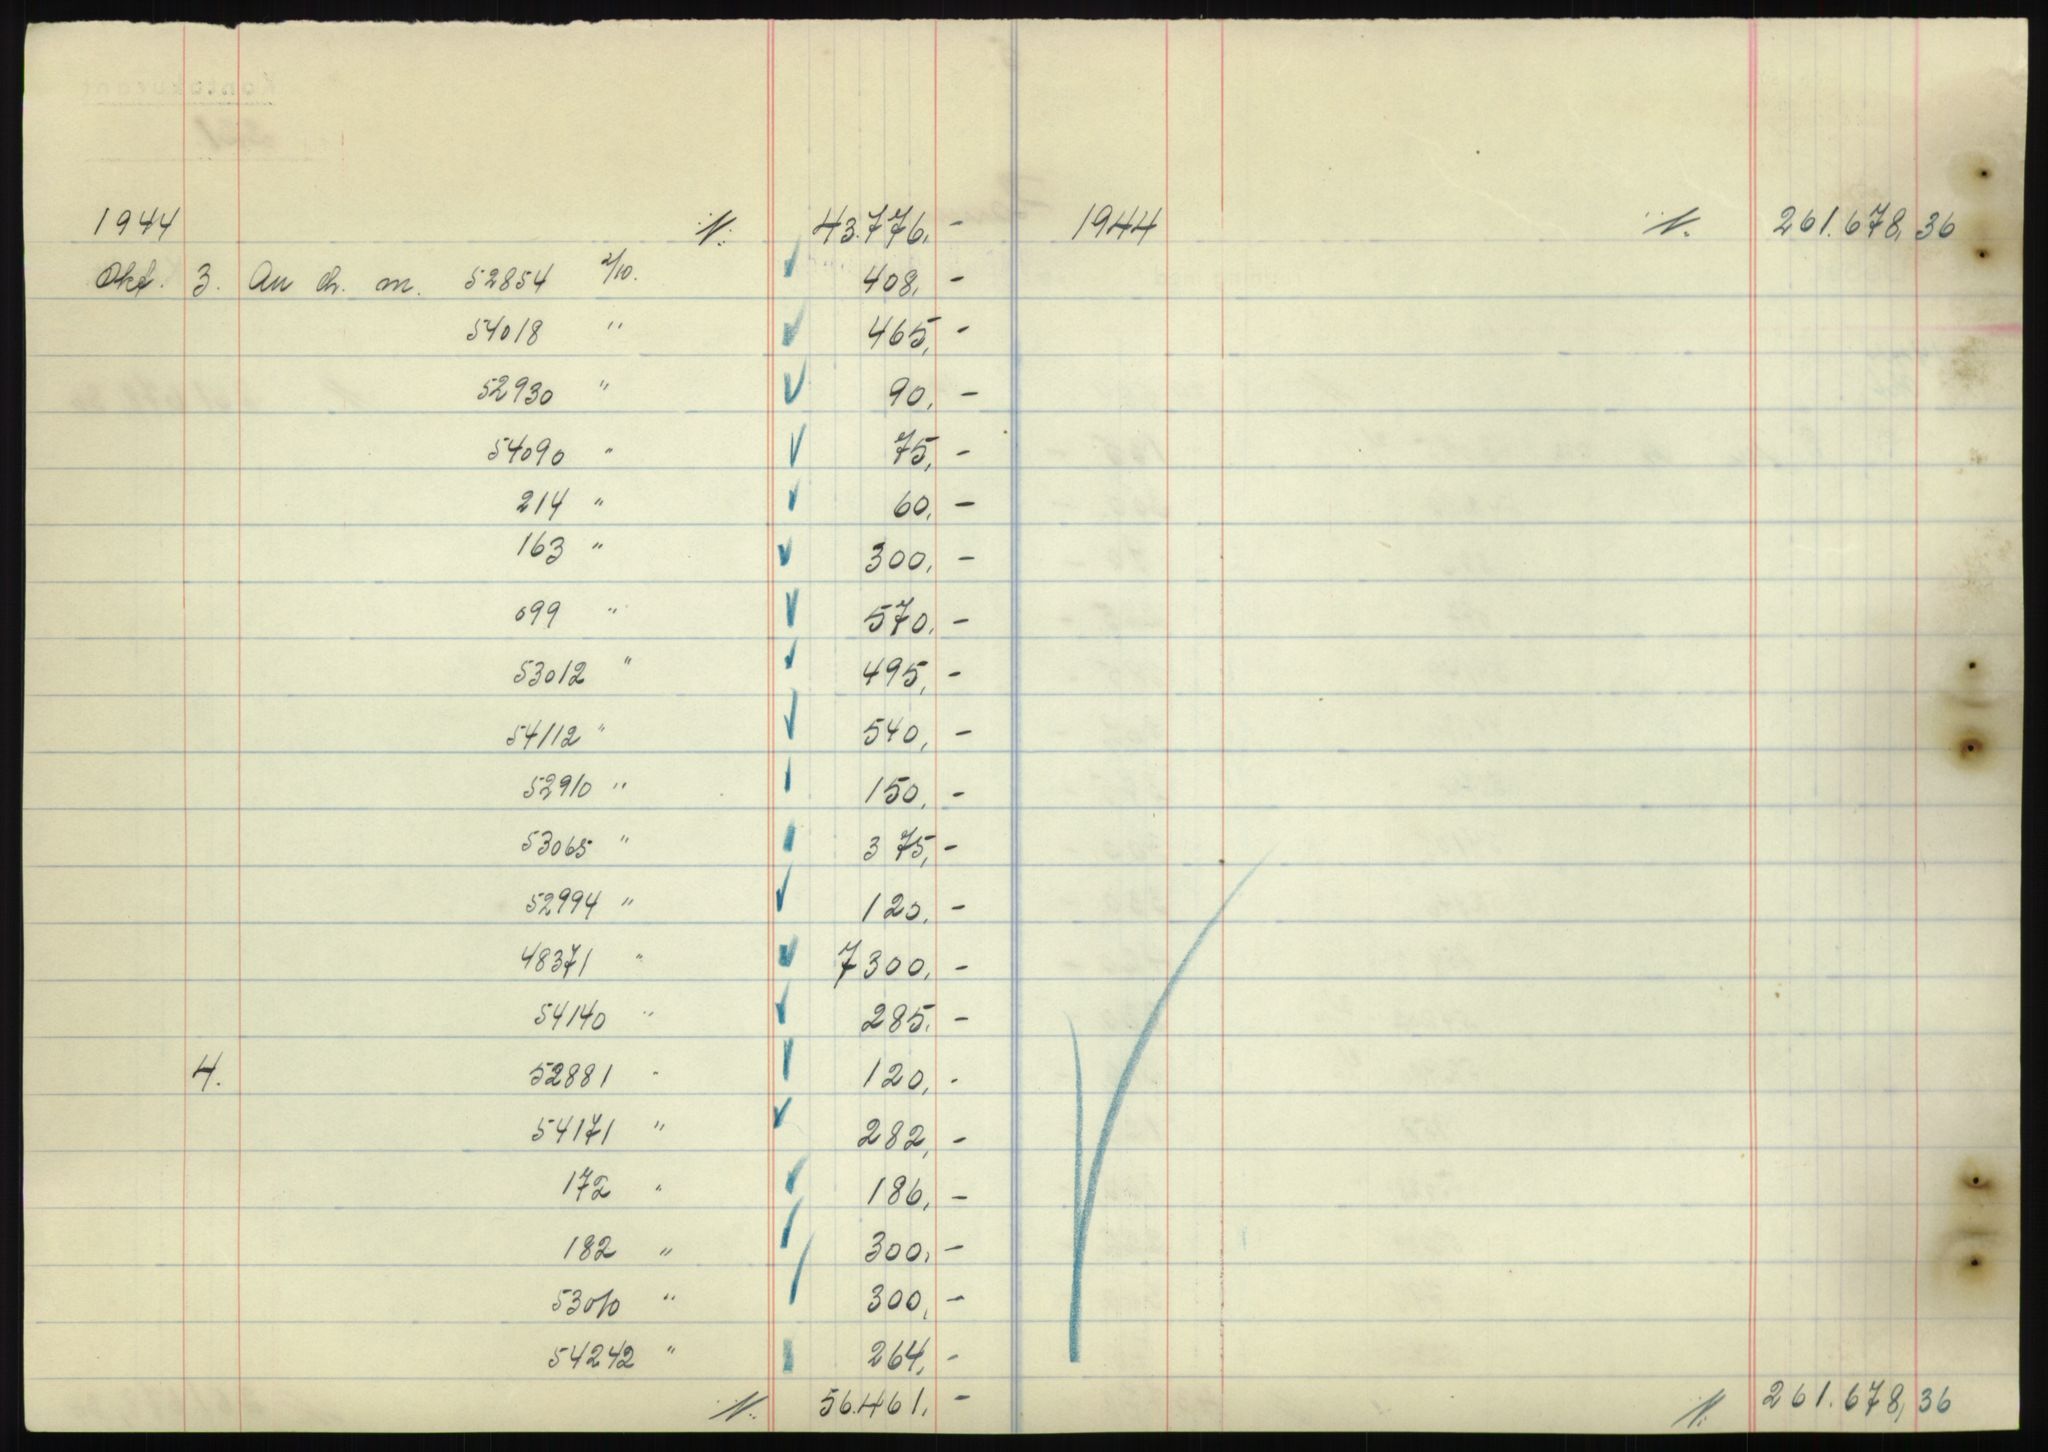 1944 ·/·N: 43.776,-
Okt. 3. An ch. m. 52854 2/10. 408,-
54018 " 465,-
52930 " 90,-
54090 " 75,-
214 " 60,-
163 " 300,-
099 " 570,-
53012 " 495,-
54112 " 540,-
52910 " 150,-
53065 " 375,-
52994 " 120,-
48371 " 7300,-
54140 " 285,-
4. 52881 " 120,-
54171 " 282,-
172 " 186,-
182 " 300,-
53010 " 300,-
54242 " 264,-
·/·N: 56.461,-
1944 ·/·N. 261.678,36
·/·N: 261.678,36